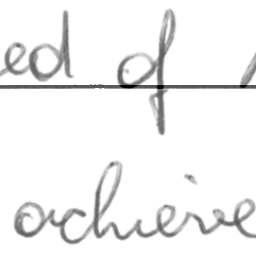 ed of
achieve